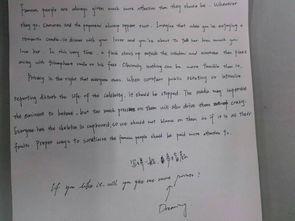 Famous people are always given much more attention than they should be. Wherever
they go, Cameras and the paparazzi always appear soon. Imagine that while you're enjoying a
romantic candle-lit dinner with your lover and you're about to tell her how much you
love her. In this very time, a flash shoots up outside the window and someone
away with triumphant smile on his face. Obviously nothing can be more terrible than it.
Privacy is the right that everyone owns. When constant public scrutiny or intensive
reporting disturb the life of the celebrity, it should be stopped. The media may supervise
the eminent to behave, but too much pressure on them will also drive them crazy.
Everyone has the skeleton in cupboard, so we should not blame on them as if it is all their
faults. Proper ways to scrutinize the famous people should be paid more attention to.
If you like it, will you give me more praise?
Dreaming